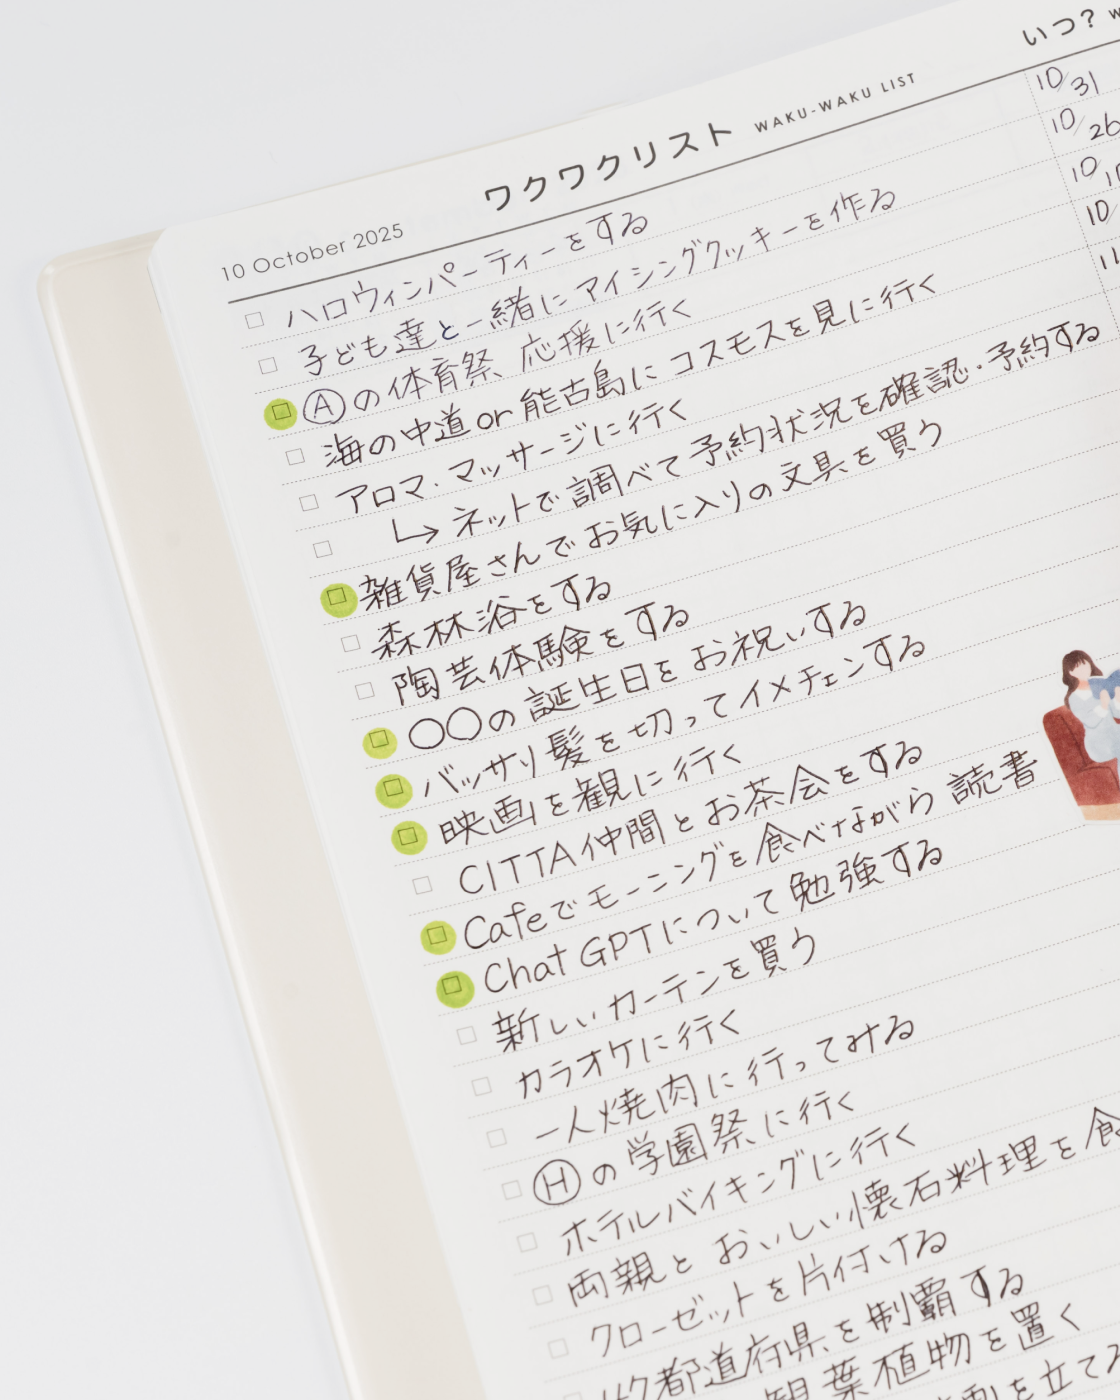 10 October 2025 ワクワクリスト WAKU-WAKU LIST いつ?
ハロウィンパーティーをする 10/31
子ども達と一緒にアイシングクッキーを作る 10/26
Ⓐの体育祭 応援に行く 10/
海の中道or能古島にコスモスを見に行く 10/
アロマ・マッサージに行く
↳ネットで調べて予約状況を確認・予約する
雑貨屋さんでお気に入りの文具を買う
森林浴をする
陶芸体験をする
〇〇の誕生日をお祝いする
バッサリ髪を切ってイメチェンする
映画を観に行く
CITTA仲間とお茶会をする
Cafeでモーニングを食べながら読書
ChatGPTについて勉強する
新しいカーテンを買う
カラオケに行く
一人焼肉に行ってみる
Ⓗの学園祭に行く
ホテルバイキングに行く
両親とおいしい懐石料理を食
クローゼットを片付ける
都道府県を制覇する
観葉植物を置く
を立て